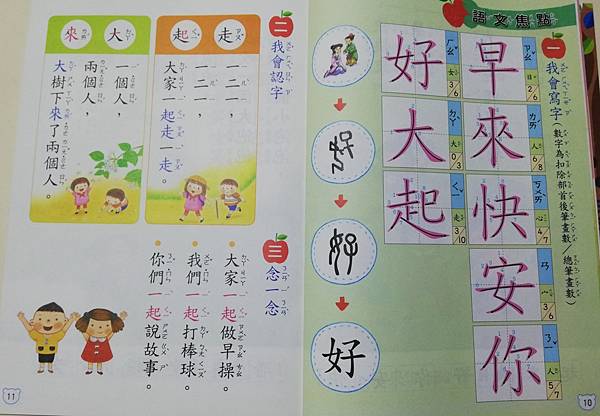 語文焦點
一 我會寫字(數字為扣除部首後筆畫數/總筆畫數)
早 日 2/6
來 人 6/8
快 心 4/7
安 宀 3/6
你 人 5/7
好 女 3/6
大 大 0/3
起 走 3/10
好
10
二 我會認字
走 起
一二一,
一二一,
大家一起走一走。
大 來
一個人,
兩個人,
大樹下來了兩個人。
三 念一念
大家一起做早操。
我們一起打棒球。
你們一起說故事。
11